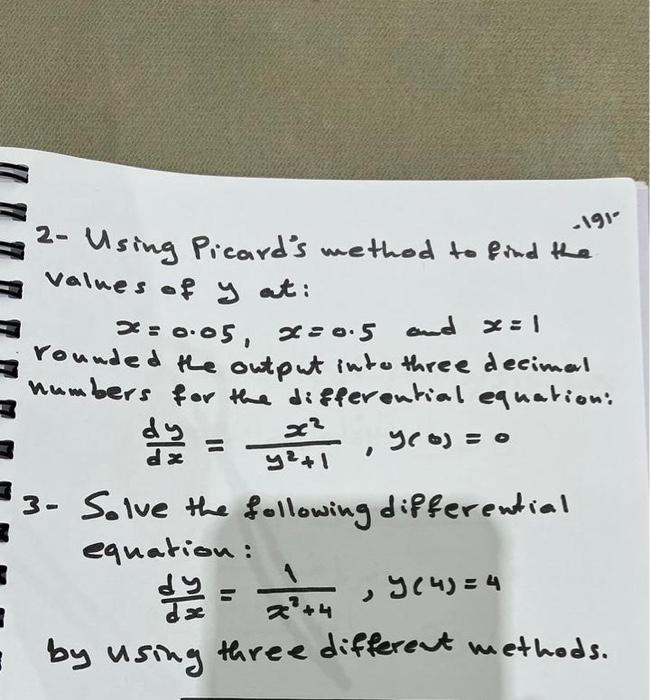 2- Using Picard's method to find the
values of y at:
x = 0.05, x = 0.5 and x = 1
rounded the output into three decimal
numbers for the differential equation:
dy/dx = x²/(y²+1) , y(0) = 0
3- Solve the following differential
equation:
dy/dx = 1/(x²+4) , y(4) = 4
by using three different methods.